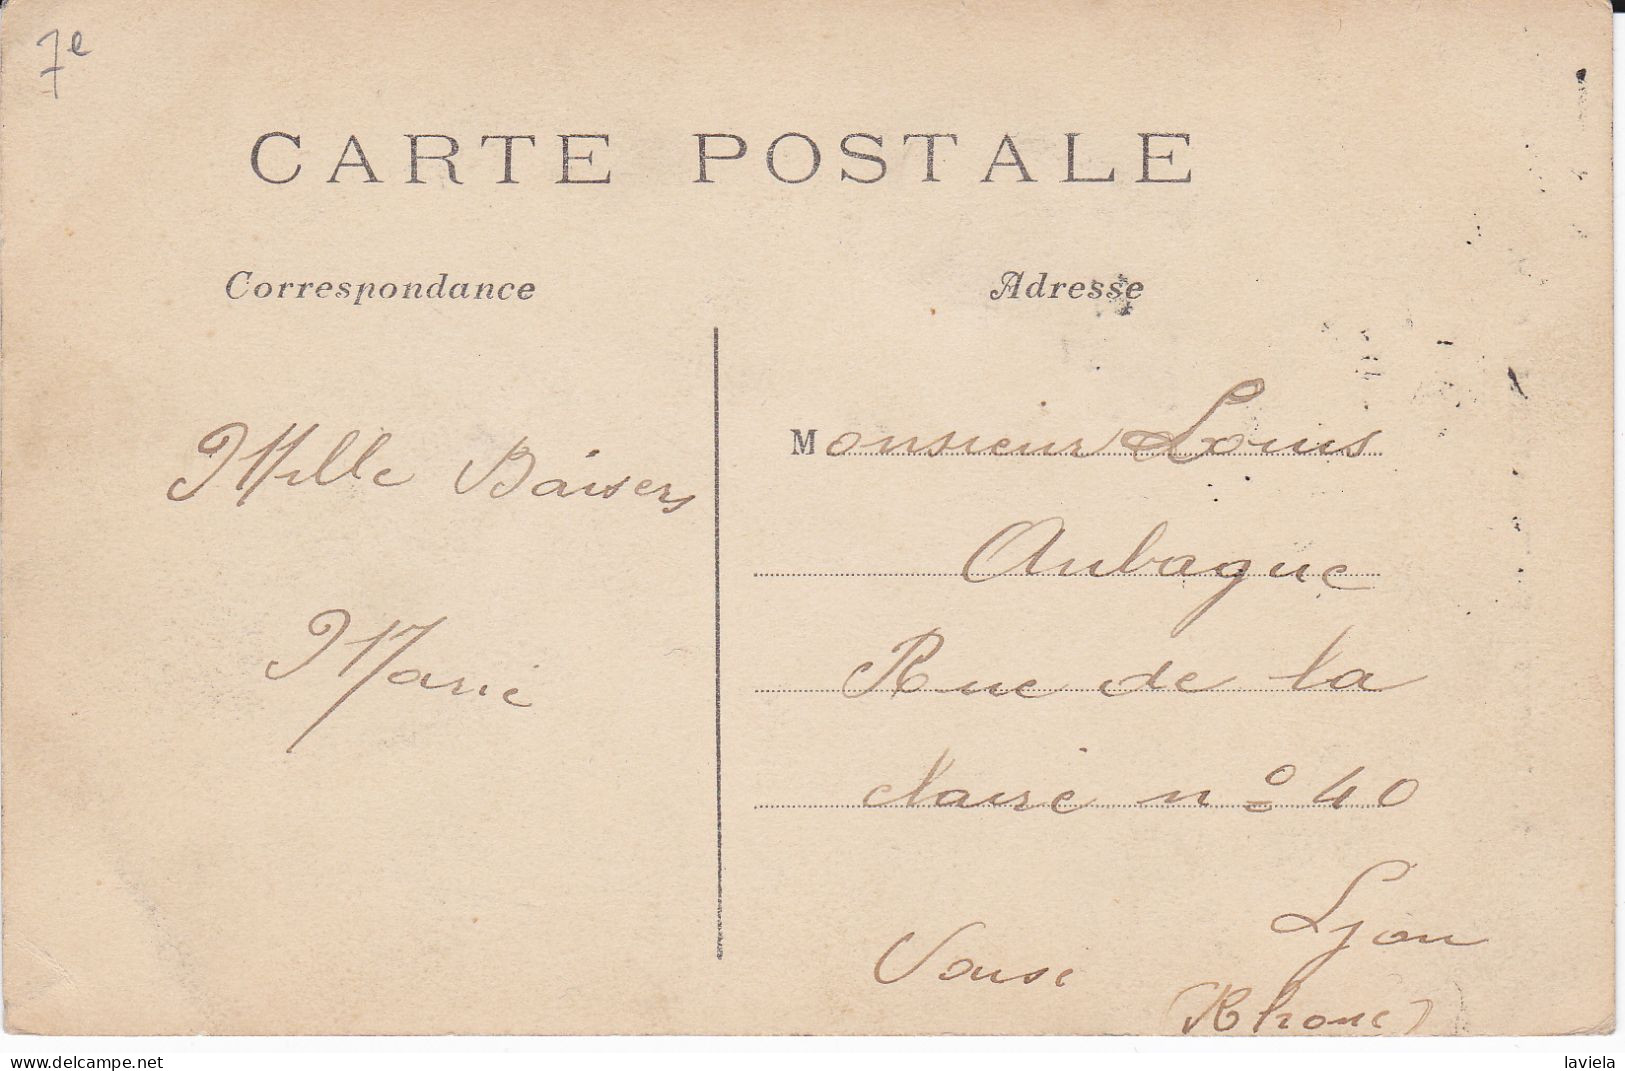 7e
CARTE POSTALE
Correspondance
Mille Baisers
Marie
Adresse
Monsieur Louis
Aubague
Rue de la
claire nº 40
Lyon
Vaise
(Rhone)
delcampe.net
laviela